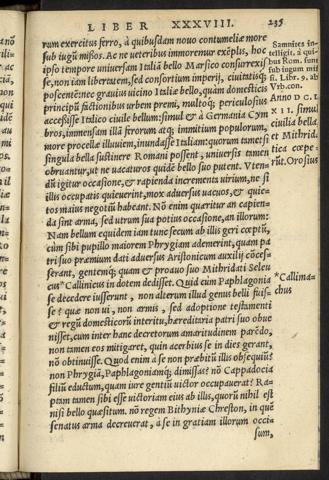 LIBER XXXVIII. 235
rum exercitus ferro, à quibusdam nouo contumeliæ more
sub iugũ mißos. Ac ne veteribus immorentur exẽplis, hoc
ipso tempore vniuersam Italiã bello Marsico consurrexis
se, non iam libertatem, sed consortium imperij, ciuitatisq́;
poscentẽ: nec grauius vicino Italiæ bello, quàm domesticis
principũ factionibus vrbem premi, multoq́; periculosius
accessisse Italico ciuile bellum: simul & à Germania Cym
bros, immensam illã ferorum atq; immitium populorum,
more procellæ illuuiem, inundasse Italiam: quorum tametsi
singula bella sustinere Romani possent, vniuersis tamen
obruantur, vt ne vacaturos quidẽ bello suo putent. Vten-
dũ igitur occasione, & rapienda incrementa virium, ne si
illis occupatis quieuerint, mox aduersus vacuos, & quie-
tos maius negotiũ habeant. Nõ enim quæritur an capien-
da sint arma, sed vtrum sua potius occasione, an illorum:
Nam bellum equidem iam tunc secum ab illis geri cœptũ,
cùm sibi pupillo maiorem Phrygiam ademerint, quam pa
tri suo præmium dati aduersus Aristonicum auxilij cõces-
serant, gentemq́; quam & proauo suo Mithridati Seleu
cus *Callinicus in dotem dedisset. Quid cùm Paphlagonia
se decedere iusserunt, non alterum illud genus belli fuis-
se? quæ non vi, non armis, sed adoptione testamenti
& regũ domesticorũ interitu, hæreditaria patri suo obue
nisset, cum inter hanc decretorum amaritudinem parẽdo,
non tamen eos mitigaret, quin acerbius se in dies gerant,
nõ obtinuisse. Quod enim à se non præbitũ illis obsequiũ?
non Phrygiã, Paphlagoniamq́; dimissas? nõ Cappadocia
filiũ eductum, quam iure gentiũ victor occupauerat? Ra-
ptam tamen sibi esse victoriam eius ab illis, quorũ nihil est
nisi bello quæsitum. nõ regem Bithyniæ Chreston, in quẽ
senatus arma decreuerat, à se in gratiam illorum occi
sum,
Samnites in-
telligit, à qui
bus Rom. sunt
sub iugum mis
si. Libr. 9. ab
Vrb. con.
ANNO DCL
XII. simul
ciuilia bella
et Mithrida-
tica cœpe-
rũt. Orosius
*Callima-
chus